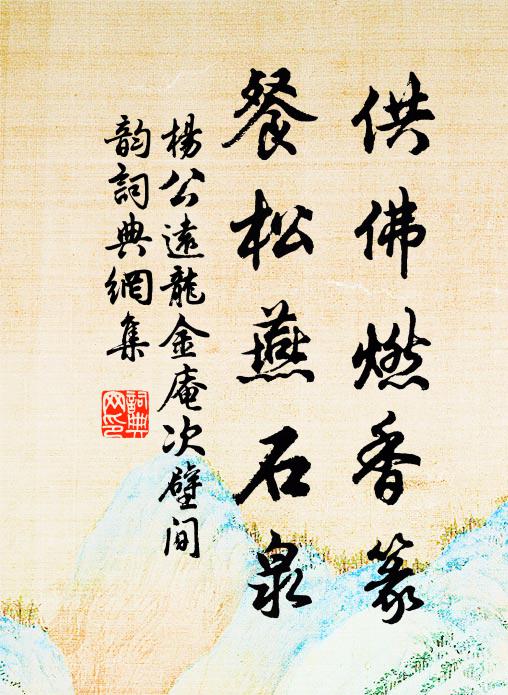 供佛燃香篆
餐松燕石泉
楊公遠龍金庵次壁间
韵詞典網集
詞典网印